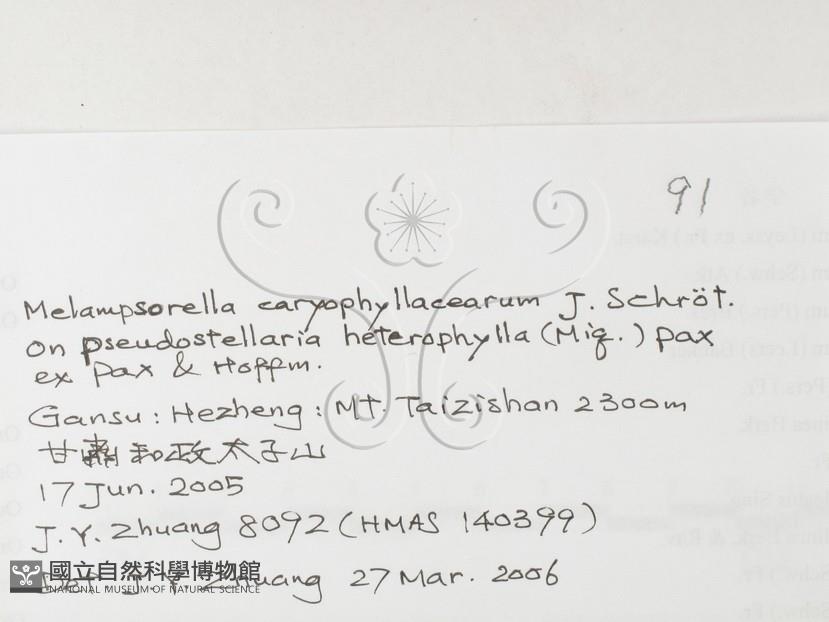 91
Melampsorella caryophyllacearum J. Schröt.
on pseudostellaria heterophylla (Miq.) Pax
ex Pax & Hoffm.
Gansu: Hezheng: Mt. Taizishan 2300m
甘肅和政太子山
17 Jun. 2005
J. Y. Zhuang 8092 (HMAS 140399)
J. Y. Zhuang 27 Mar. 2006
國立自然科學博物館
NATIONAL MUSEUM OF NATURAL SCIENCE